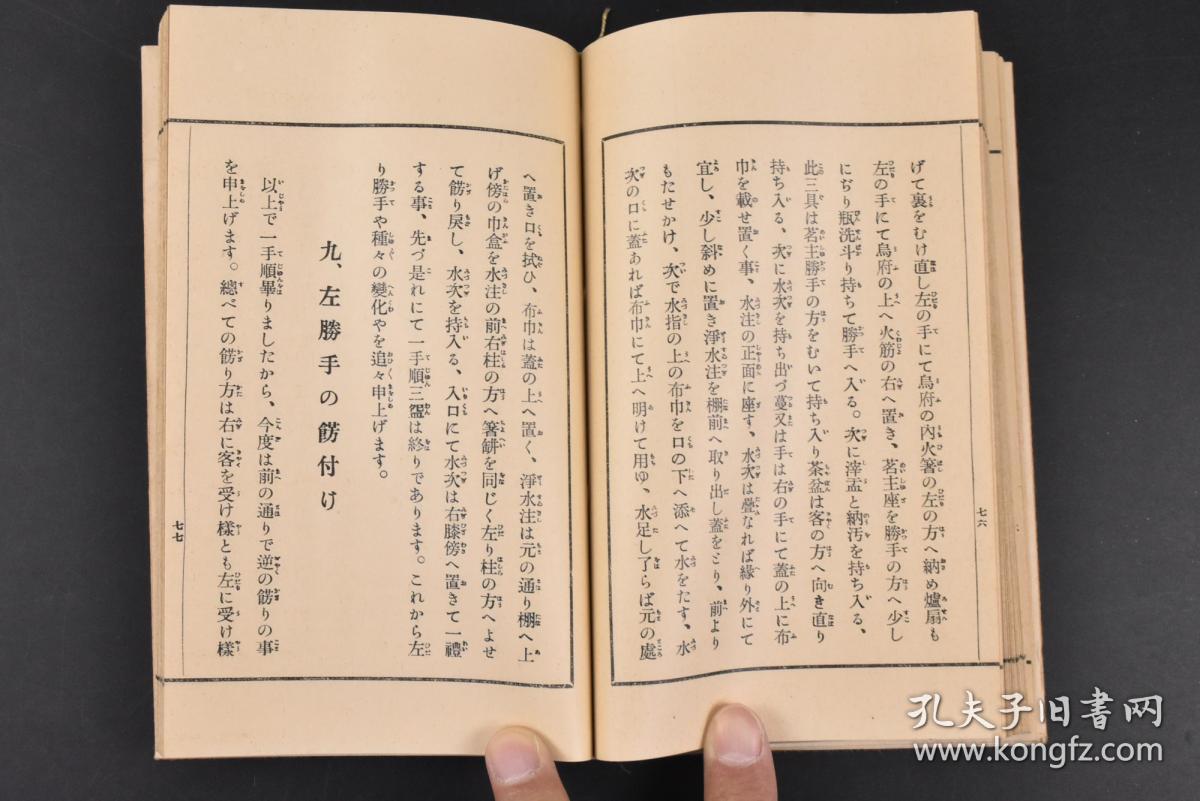 げて裏をむけ直し左の手にて烏府の內火箸の左の方へ納め爐扇も
左の手にて烏府の上へ火筋の右へ置き、茗主座を勝手の方へ少し
にぢり瓶洗斗り持ちて勝手へ入る。次に滓盂と納汚を持ち入る、
此三具は茗主勝手の方をむいて持ち入り茶盆は客の方へ向き直り
持ち入る、次に水次を持ち出づ蔓又は手は右の手にて蓋の上に布
巾を載せ置く事、水注の正面に座す、水次は疊なれば緣り外にて
宜し、少し斜めに置き淨水注を棚前へ取り出し蓋をとり、前より
もたせかけ、次で水指の上の布巾を口の下へ添へて水をたす、水
次の口に蓋あれば布巾にて上へ明けて用ゆ、水足し了らば元の處
七六
へ置き口を拭ひ、布巾は蓋の上へ置く、淨水注は元の通り棚へ上
げ傍の巾盒を水注の前右柱の方へ箸缾を同じく左り柱の方へよせ
て餝り戾し、水次を持入る、入口にて水次は右膝傍へ置きて一禮
する事、先づ是れにて一手順三盌は終りであります。これから左
り勝手や種々の變化やを追々申上げます。
九、左勝手の餝付け
以上で一手順畢りましたから、今度は前の通りで逆の餝りの事
を申上げます。總べての餝り方は右に客を受け樣とも左に受け樣
七七
孔夫子旧书网
www.kongfz.com